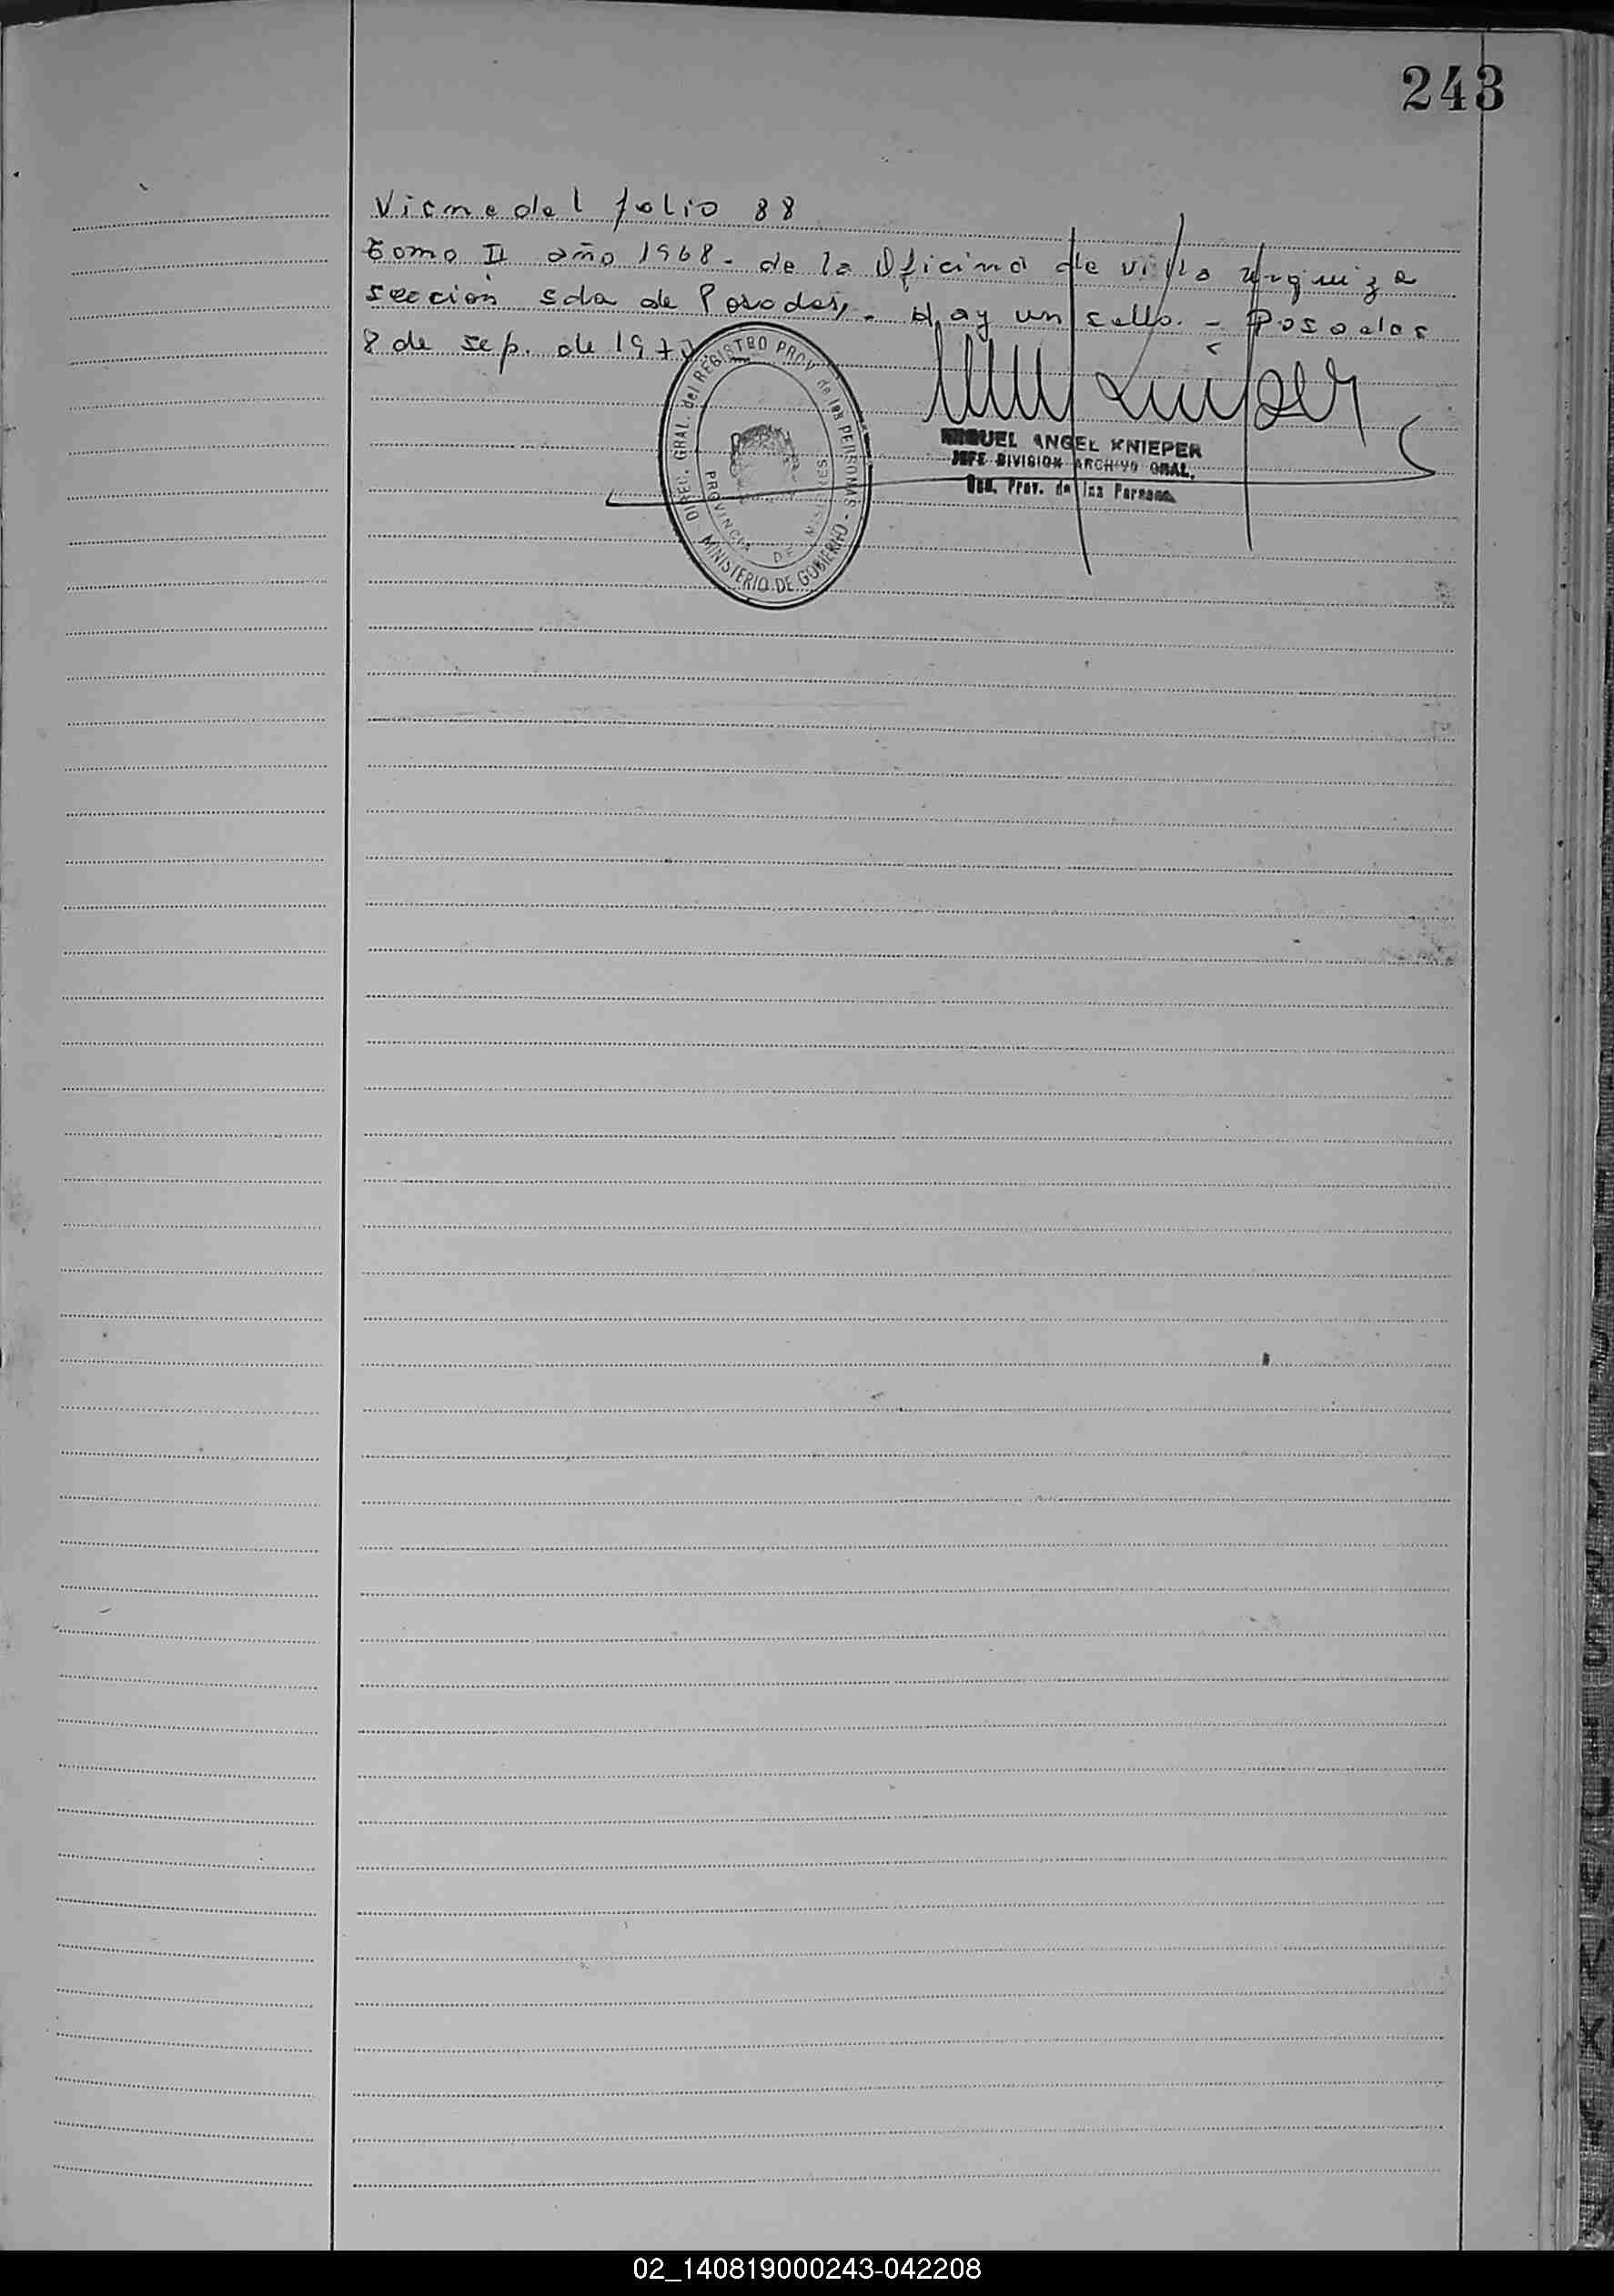 243
Viene del folio 88
tomo II año 1968.- de la Oficina de villa urquiza
sección 2da de Posadas,.- Hay un sello.- Posadas
8 de sep. de 197
DIREC. GRAL. del REGISTRO PROV. de las PERSONAS - MINISTERIO DE GOBIERNO
PROVINCIA DE MISIONES
MIGUEL ANGEL KNIEPER
JEFE DIVISION ARCHIVO GRAL.
Prov. de las Personas
02_140819000243-042208